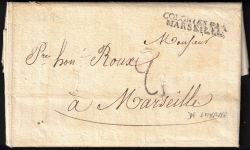 COLONIES PAR
MARSEILLE
Monsieur
Pre honé Roux
à Marseille